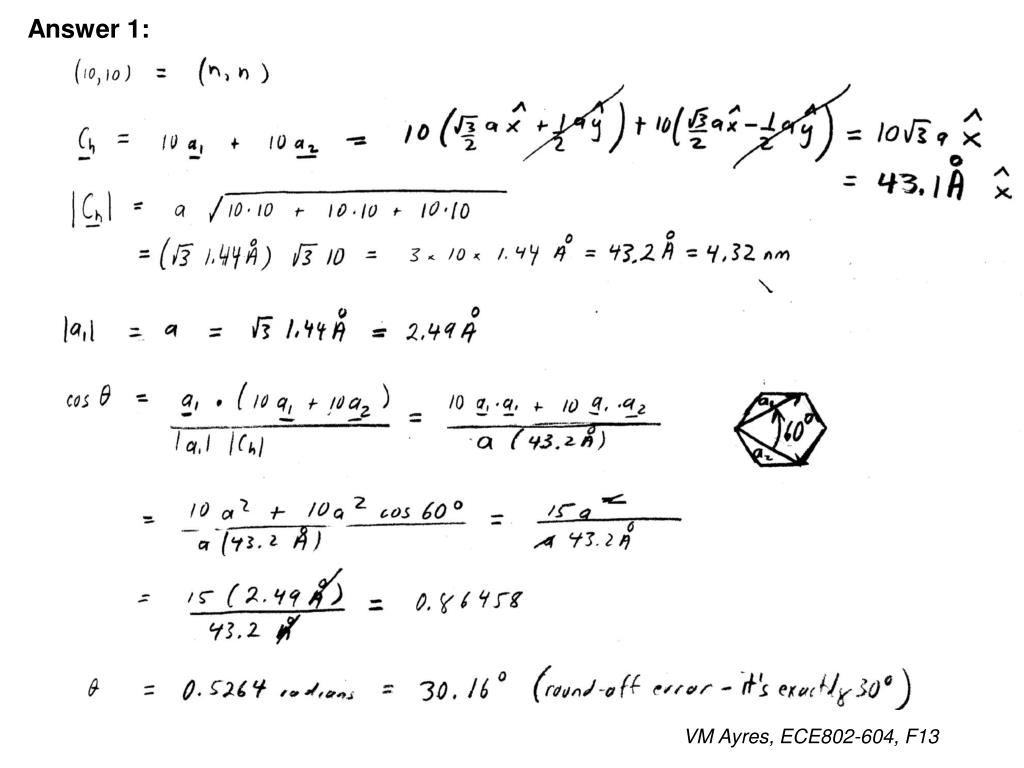 Answer 1:
(10,10) = (n, n)
C_h = 10 a_1 + 10 a_2 = 10 (√3/2 a x̂ + 1/2 a ŷ) + 10 (√3/2 a x̂ - 1/2 a ŷ) = 10√3 a x̂
= 43.1 Å x̂
|C_h| = a √(10·10 + 10·10 + 10·10)
= (√3 1.44 Å) √3 10 = 3 × 10 × 1.44 Å = 43.2 Å = 4.32 nm
|a_1| = a = √3 1.44 Å = 2.49 Å
cos θ = a_1 · (10 a_1 + 10 a_2) / |a_1| |C_h| = 10 a_1·a_1 + 10 a_1·a_2 / a (43.2 Å)
a_1 a_2 60°
= 10 a² + 10 a² cos 60° / a (43.2 Å) = 15 a² / a 43.2 Å
= 15 (2.49 Å) / 43.2 Å = 0.86458
θ = 0.5264 radians = 30.16° (round-off error - it's exactly 30°)
VM Ayres, ECE802-604, F13